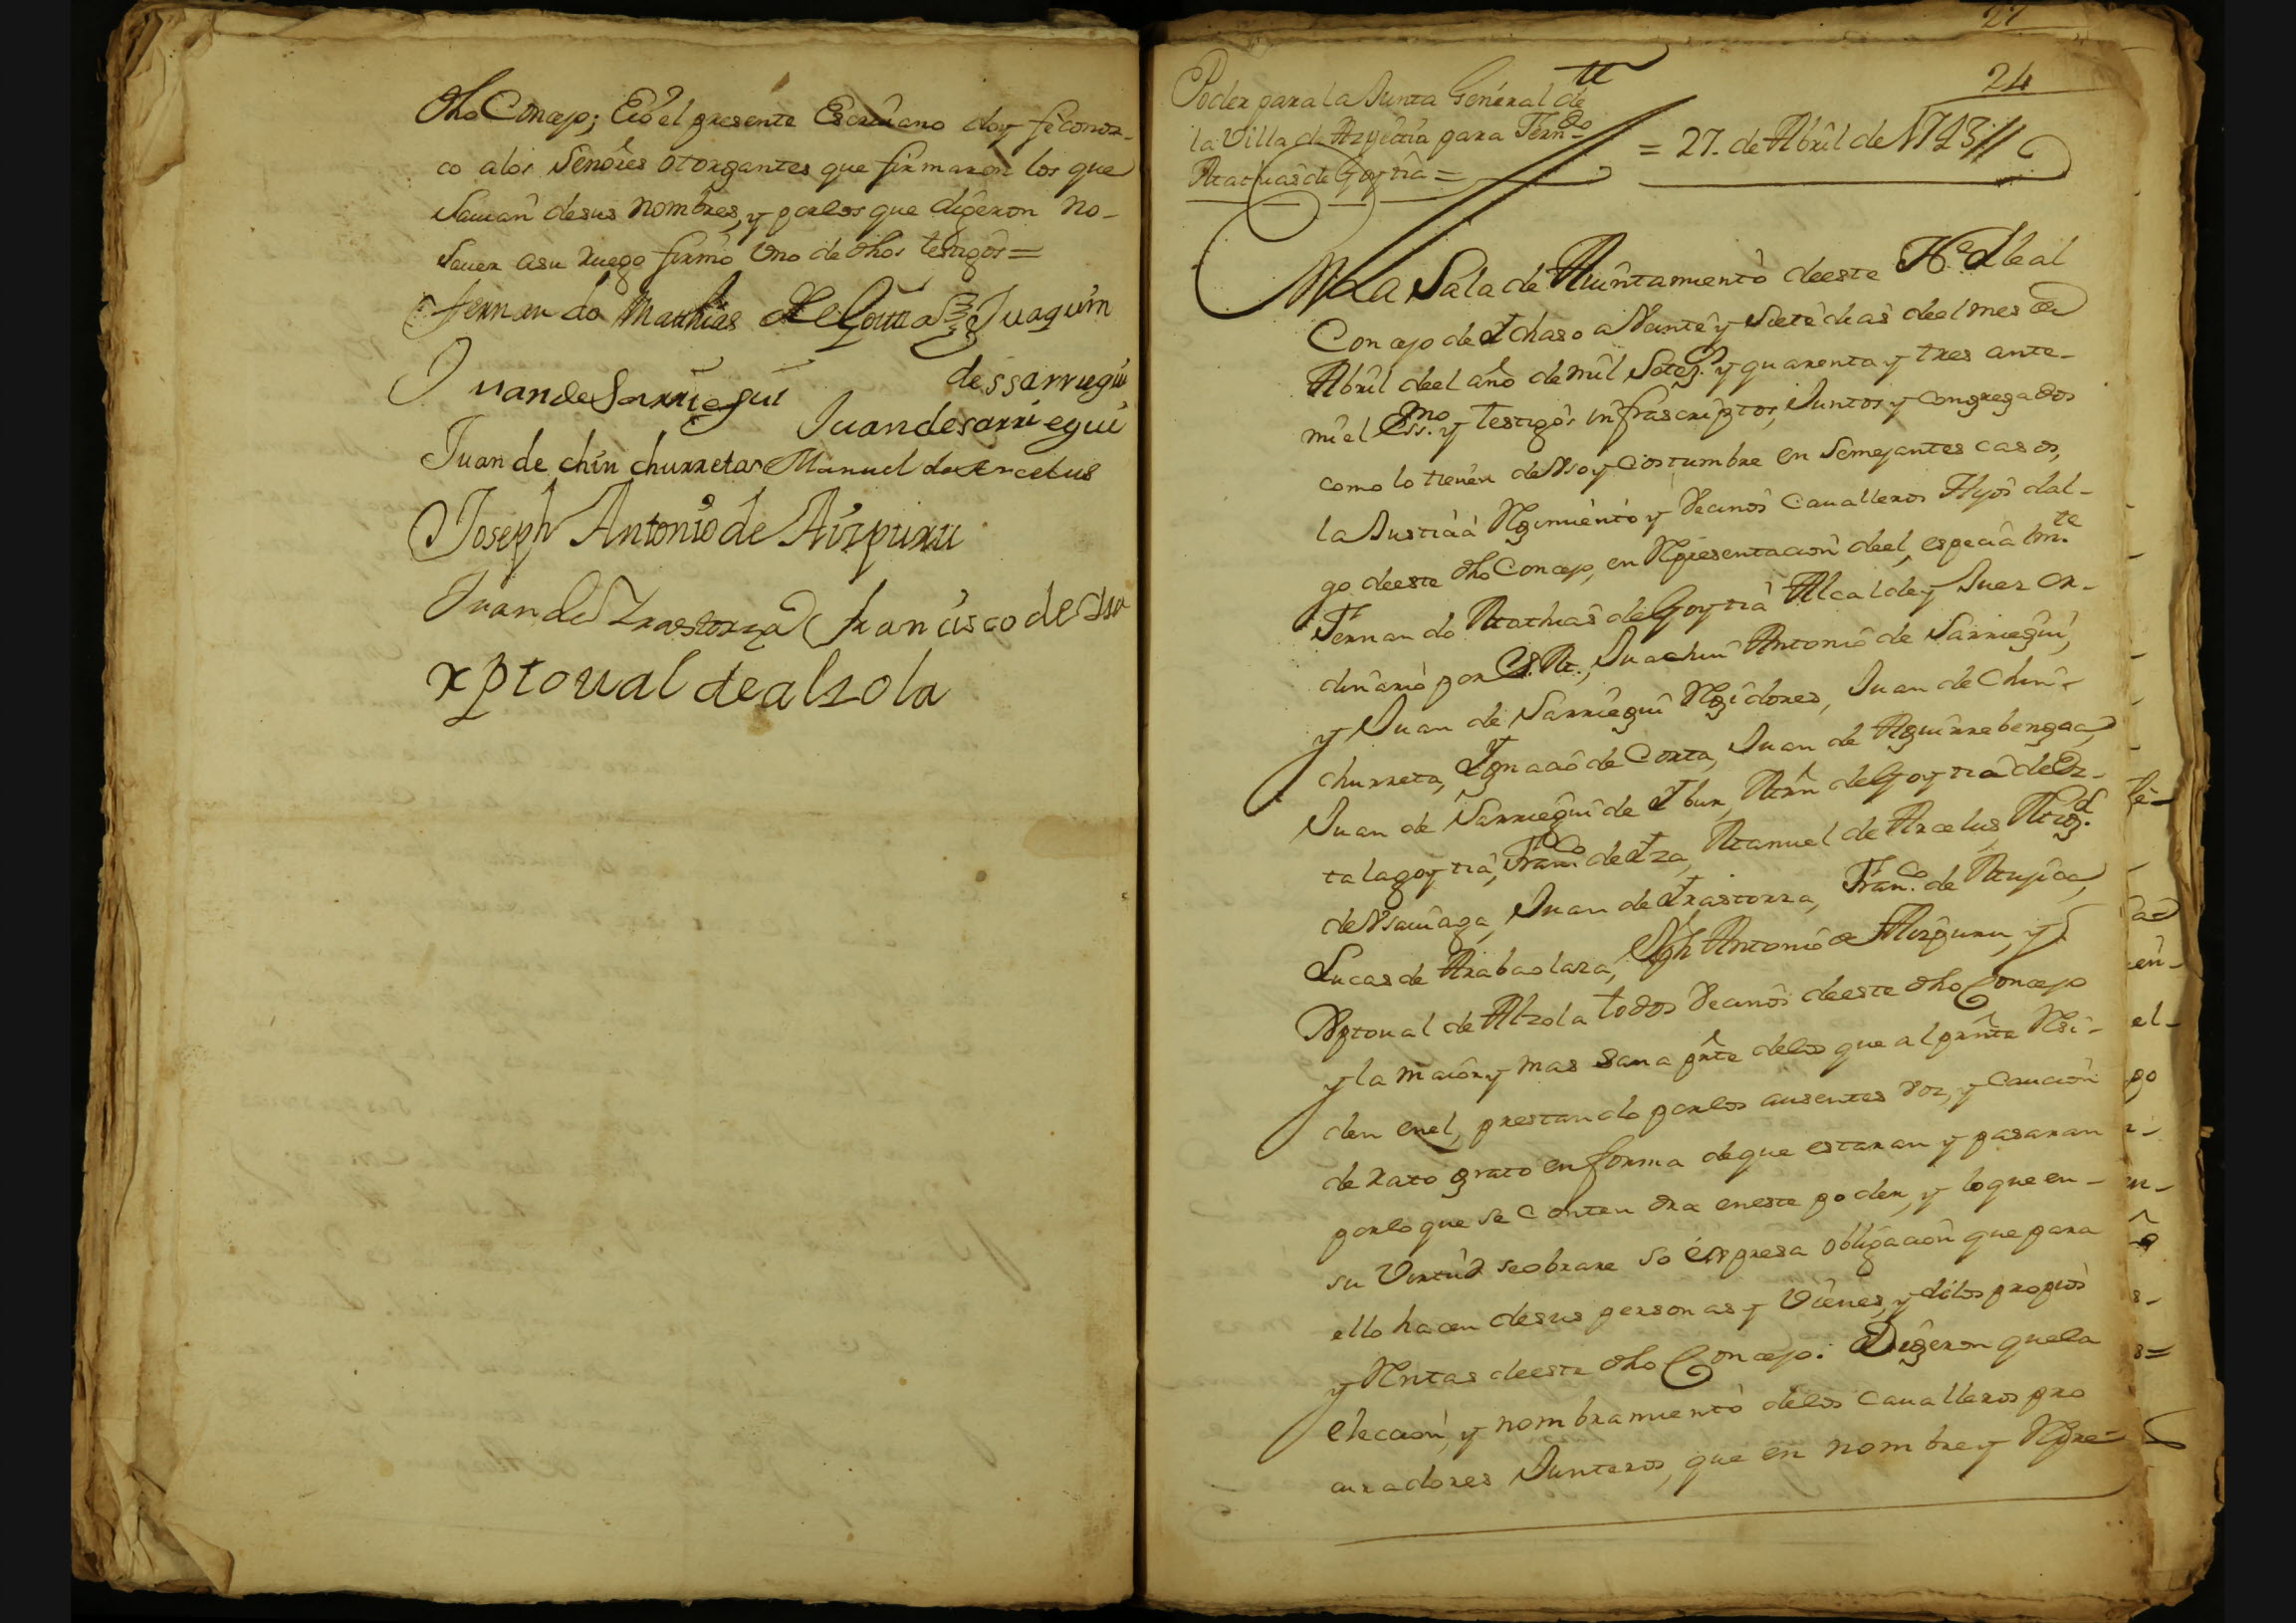 dho Concejo; E io el presente Escriuano doy fe conoz-
co alos Señores otorgantes que firmaron los que
sauian desus nombres, y porlos que digeron no-
sauer asu ruego firmó vno de dhos testigos=
Fernando Mathias de Goitia Juaquin
de ssarriegui
Juan de Sarriegui
Juan de sarriegui
Juan de chinchurreta Manuel de Arcelus
Joseph Antonio de Aizpuru
Juan de Irastorza francisco de Isa
xptoual de alzola
27
24
Poder para la Junta General de
la Villa de Azpeitia para Ferndo
Mathias de Goytia =
= 27. de Abril de 1743//
EN La Sala de Aiuntamiento deeste N. e Leal
Concejo de Ichaso a Vente y Siete dias deel mes de
Abril deel año de mil Setezs. y quarenta y tres ante-
mi el Essno. y testigos infrascriptos, Juntos y congregados
como lo tienen de Vso y costumbre en Semejantes casos,
la Justicia Regimiento y Vecinos Caualleros Hijos dal-
go deeste dho Concejo, en Representacion deel, especialmte.
Fernando Mathias de Goytia Alcalde y Juez or-
dinario por S. M., Juachin Antonio de Sarriegui,
y Juan de Sarriegui Regidores, Juan de Chin-
churreta, Ignacio de Corta, Juan de Aguirrebengoa,
Juan de Sarriegui de Ibur, Mrn de Goytia de Oz-
ta lagoytia, Franco. de Iza, Manuel de Arcelus Migl.
de Vsauiaga, Juan de Irastorza, Franco. de Mujica,
Lucas de Arabaolaza, Jph Antonio de Aizpuru, y
Xptoual de Alzola todos Vecinos deeste dho Concejo
y la maior y mas sana prte delos que al prnte Resi-
den enel, prestando porlos ausentes voz, y caucion
de rato grato en forma deque estaran y pasaran
porlo que se contendra eneste poder, y loque en-
su Virtud seobrare so expresa obligacion que para
ello hacen desus personas y Vienes, y delos propios
y Rentas deeste dho Concejo: Digeron quela
eleccion, y nombramiento delos Caualleros pro
curadores Junteros, que en nombre y Repre-